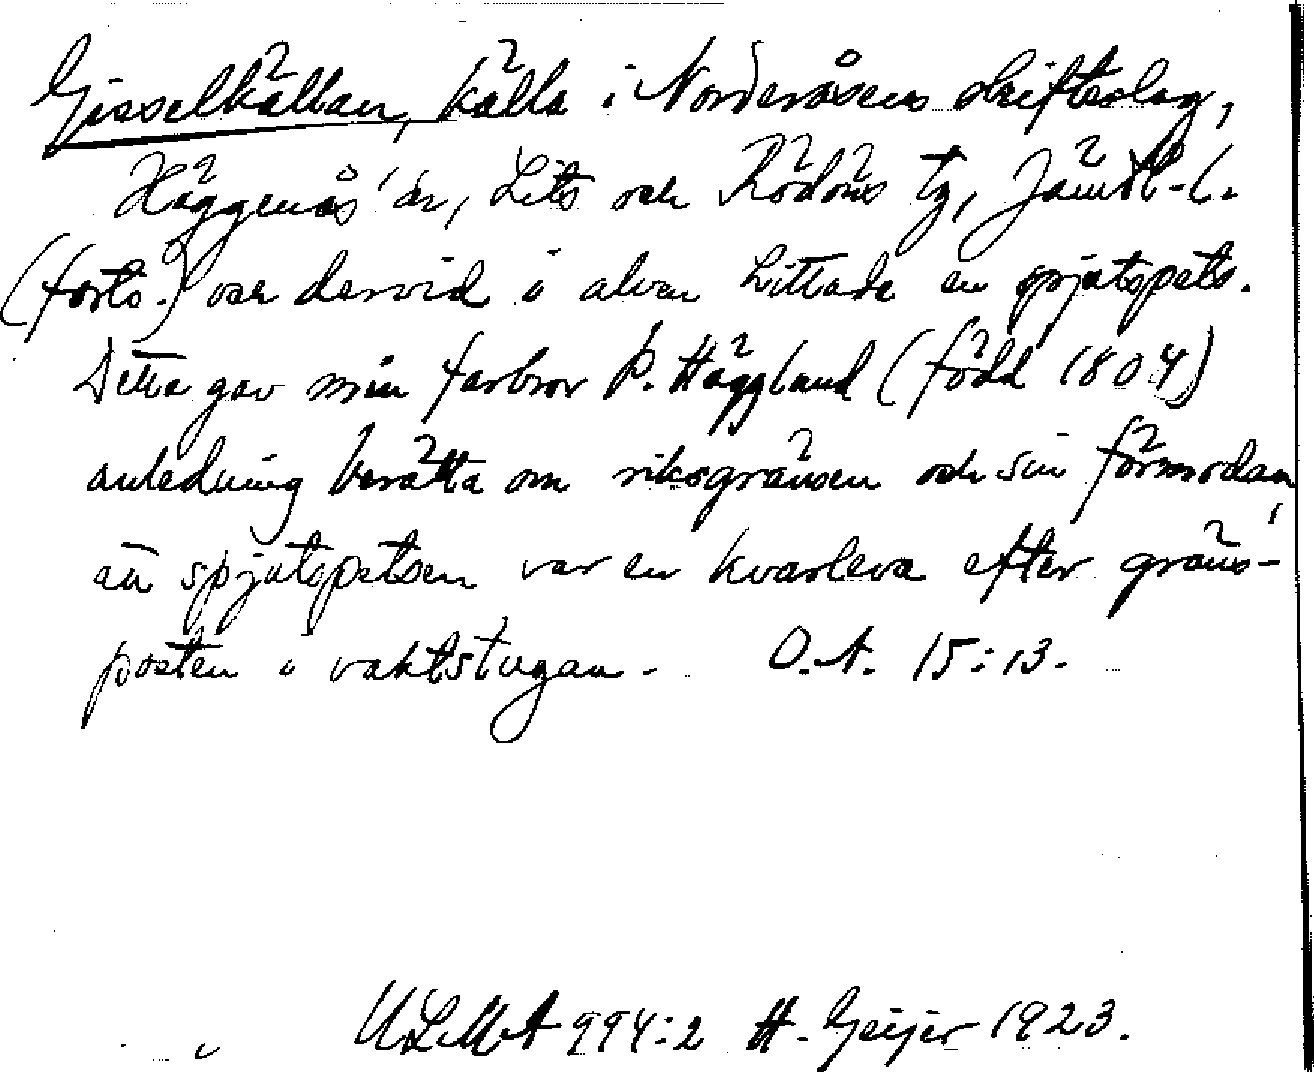 Gisselkällan, källa i Norderåsens skifteslag,
Häggenås sn, Lits och Rödöns tg, Jämtl-l.
(forts.) och dervid i alven hittade en spjutspets.
Detta gav min farbror P. Hägglund (född 1804)
anledning berätta om riksgränsen och sin förmodan,
att spjutspetsen var en kvarleva efter gräns-
posten i vaktstugan. O.A. 15:13.
ULMA 994:2 H. Geijer 1923.